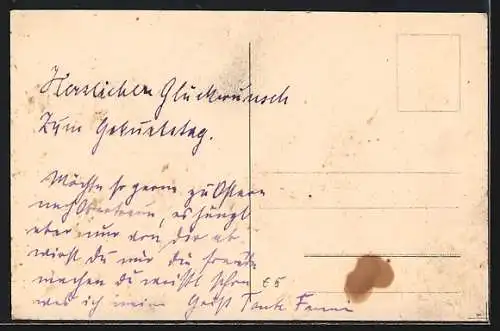 Herzlichen Glückwunsch
Zum Geburtstag.
Möchte so gerne zu Ostern
nach es hängt
aber nur von dir ab
wirst du mir die Freude
machen du weißt schon
was ich meine Gruß Tante Fanni
£5